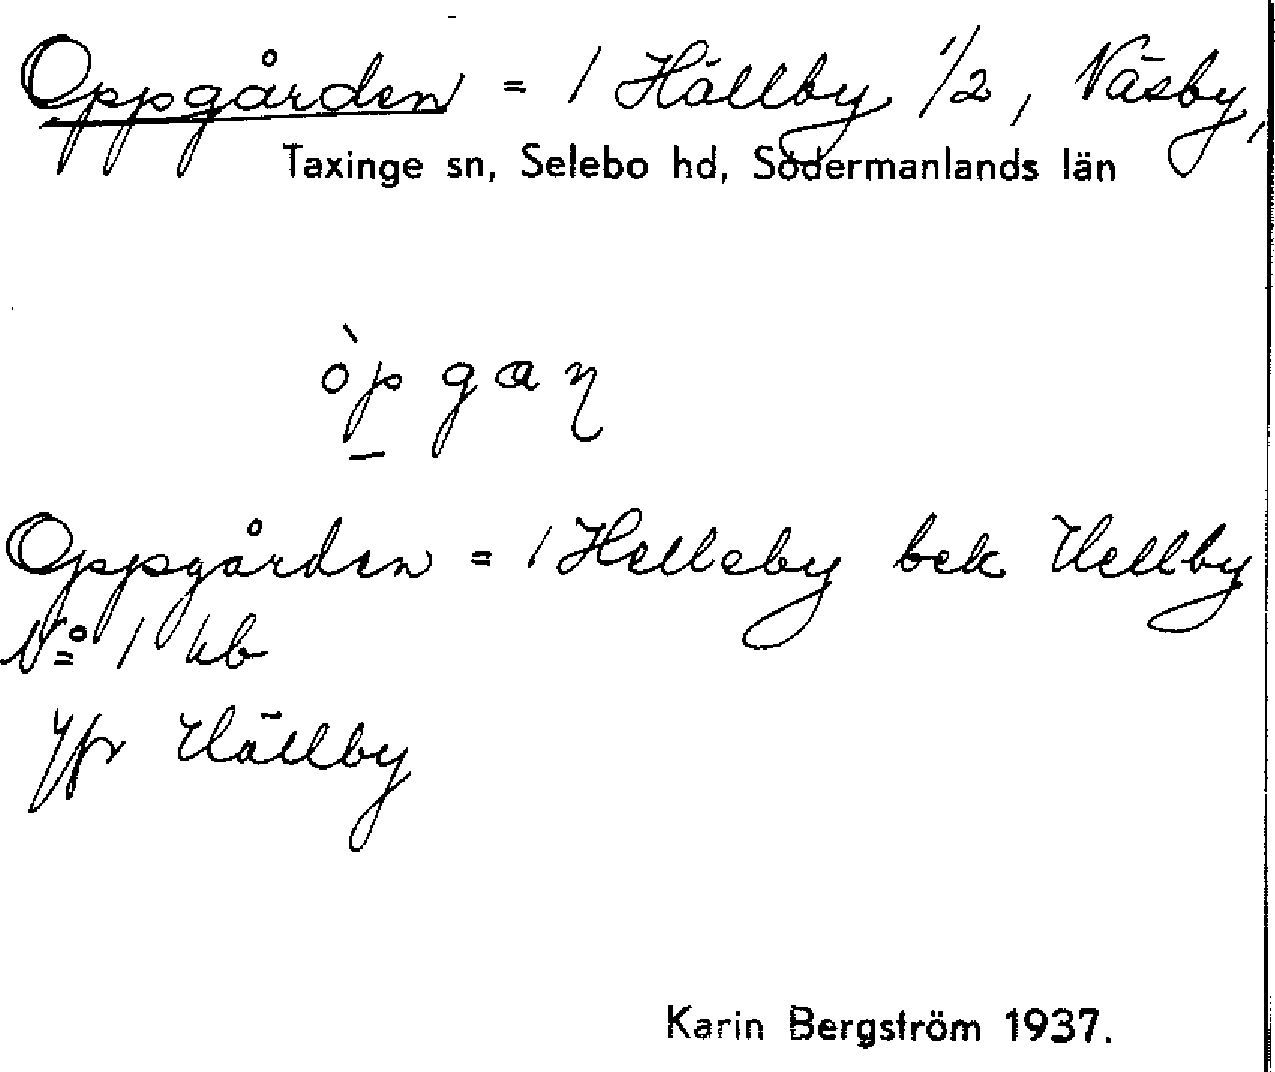 Oppgården = 1 Hällby 1/2, Näsby,
Taxinge sn, Selebo hd, Södermanlands län
òp̱ gaɳ
Oppgården = 1 Helleby bek Hellby
No 1 kb
Jfr Hällby
Karin Bergström 1937.